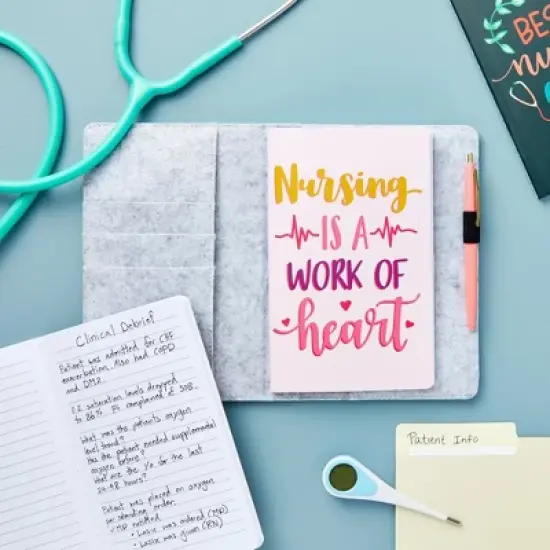 BES
nu
Nursing
IS A
WORK OF
heart
Clinical Debrief
Patient was admitted for CHF
exacerbation. Also had COPD
and DM2.
O2 saturation levels dropped
to 86%. Pt complained of SOB.
What was the patients oxygen
level trend?
Has the patient needed supplemental
oxygen before?
What are the I/o for the last
24-48 hours?
Patient was placed on oxygen
per standing order.
MD notified
• Lasix was ordered (MD)
• Lasix was given (RN)
Patient Info